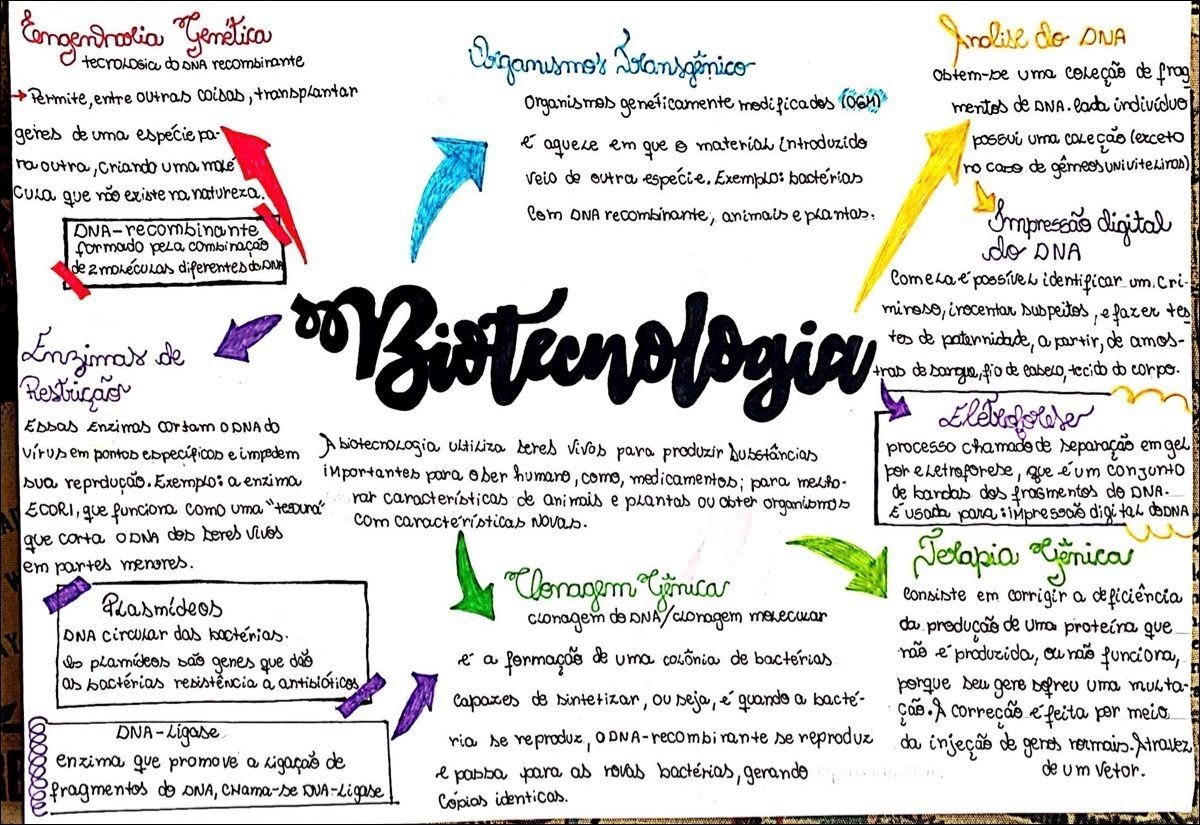 Engenharia Genética
tecnologia do DNA recombinante
→ Permite, entre outras coisas, transplantar
genes de uma espécie pa-
ra outra, criando uma molé
cula que não existe na natureza.
DNA-recombinante
formado pela combinação
de 2 moléculas diferentes do DNA
Organismos Transgênico
Organismos genéticamente modificados (OGM)
é aquele em que o material introduzido
veio de outra espécie. Exemplo: bactérias
com DNA recombinante, animais e plantas.
Análise do DNA
Obtem-se uma coleção de frag
mentos de DNA. Cada indivíduo
possui uma coleção (exceto
no caso de gêmeos univitelinos)
Impressão digital
do DNA
Com ela é possível identificar um cri-
minoso, inocentar suspeitos, e fazer tes
tes de paternidade, a partir, de amos-
tras de sangue, fio de cabelo, tecido do corpo.
Biotecnologia
Enzimas de
Restrição
Essas Enzimas cortam o DNA do
vírus em pontos específicos e impedem
sua reprodução. Exemplo: a enzima
ECORI, que funciona como uma "tesoura"
que corta o DNA dos seres vivos
em partes menores.
A biotecnologia ultiliza seres vivos para produzir substâncias
importantes para o ser humano, como, medicamentos; para melho-
rar características de animais e plantas ou obter organismos
com características novas.
Eletroforese
processo chamado de separação em gel
por eletroforese, que é um conjunto
de bandas dos fragmentos do DNA.
É usada para: impressão digital do DNA
Plasmídeos
DNA circular das bactérias.
Os plamídeos são genes que dão
as bactérias resistência a antibióticos
DNA-Ligase
enzima que promove a ligação de
fragmentos do DNA, chama-se DNA-Ligase
Clonagem Gênica
clonagem do DNA/clonagem molecular
é a formação de uma colônia de bactérias
capazes de sintetizar, ou seja, é quando a bacté-
ria se reproduz, o DNA-recombinante se reproduz
e passa para as novas bactérias, gerando
cópias identicas.
Terapia Gênica
Consiste em corrigir a deficiência
da produção de uma proteína que
não é produzida, ou não funciona,
porque seu gene sofreu uma multa-
ção. A correção é feita por meio
da injeção de genes normais. Atravez
de um vetor.